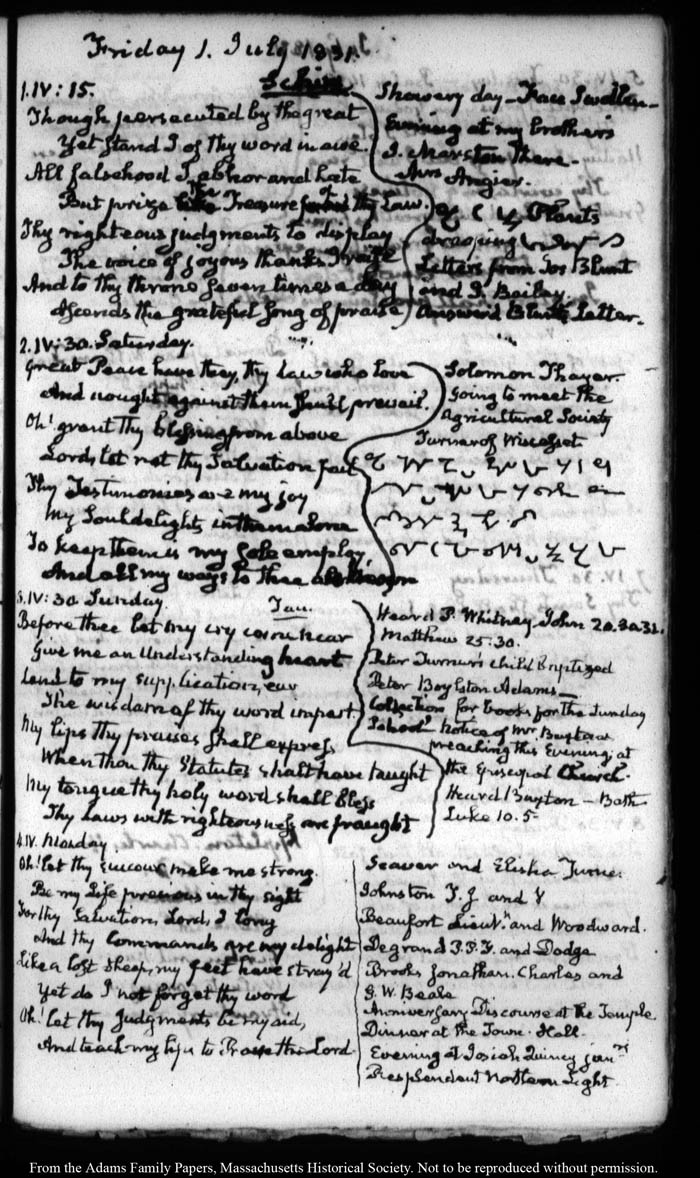 Friday 1. July 1831.
1. IV: 15.
Schin.
Though persecuted by the great
Yet stand I of thy word in awe
All falsehood I abhor and hate
But prize the Treasure of thy Law.
Thy righteous judgments to display
The voice of joyous thanks I raise
And to thy throne seven times a day
Ascends the grateful song of praise
Showery day — Face Swollen —
Evening at my brother's
J. Marston There —
Mrs Angier.
Plants
drooping
Letters from Jos Blunt
and J. Bailey
Answered Blunt's Letter.
2. IV: 30. Saturday.
Great Peace have they, thy Law who love
And nought against them shall prevail.
Oh! grant thy blessing from above
Lord, let not thy Salvation fail
Thy Testimonies are my joy
My Soul delights in them alone
To keep them is my sole employ
And all my ways to thee are known
Solomon Thayer.
Going to meet the
Agricultural Society
Turner of Wiscasset
3. IV: 30 Sunday.
Tau.
Before thee let my cry come near
Give me an understanding heart
Lend to my supplication, ear
The wisdom of thy word impart
My lips thy praises shall express
When thou thy Statutes shalt have taught
My tongue thy holy word shall bless
Thy Laws with righteousness are fraught
Heard P. Whitney, John 20. 30. 31.
Matthew 25: 30.
Peter Turner's child Baptized
Peter Boylston Adams —
Collection for books for the Sunday
School Notice of Mr
preaching this Evening at
the Episcopal Church.
Heard
Luke 10. 5.
4. IV. Monday
Oh! let thy succour make me strong.
Be my Life precious in thy sight
For thy Salvation, Lord, I long
And thy Commands are my delight
Like a lost sheep, my feet have stray'd
Yet do I not forget thy word
Oh! let thy Judgments be my aid,
And teach my lips to Praise the Lord.
Seaver and Elisha Turner
Johnston T. J. and Y
Beaufort Lieutt. and Woodward.
Degrand P.P.F. and Dodge
Brooks Jonathan. Charles and
G. W. Beale
Anniversary Discourse at the Temple.
Dinner at the Town. Hall.
Evening at Josiah Quincy junr
Resplendent Northern Light
From the Adams Family Papers, Massachusetts Historical Society. Not to be reproduced without permission.